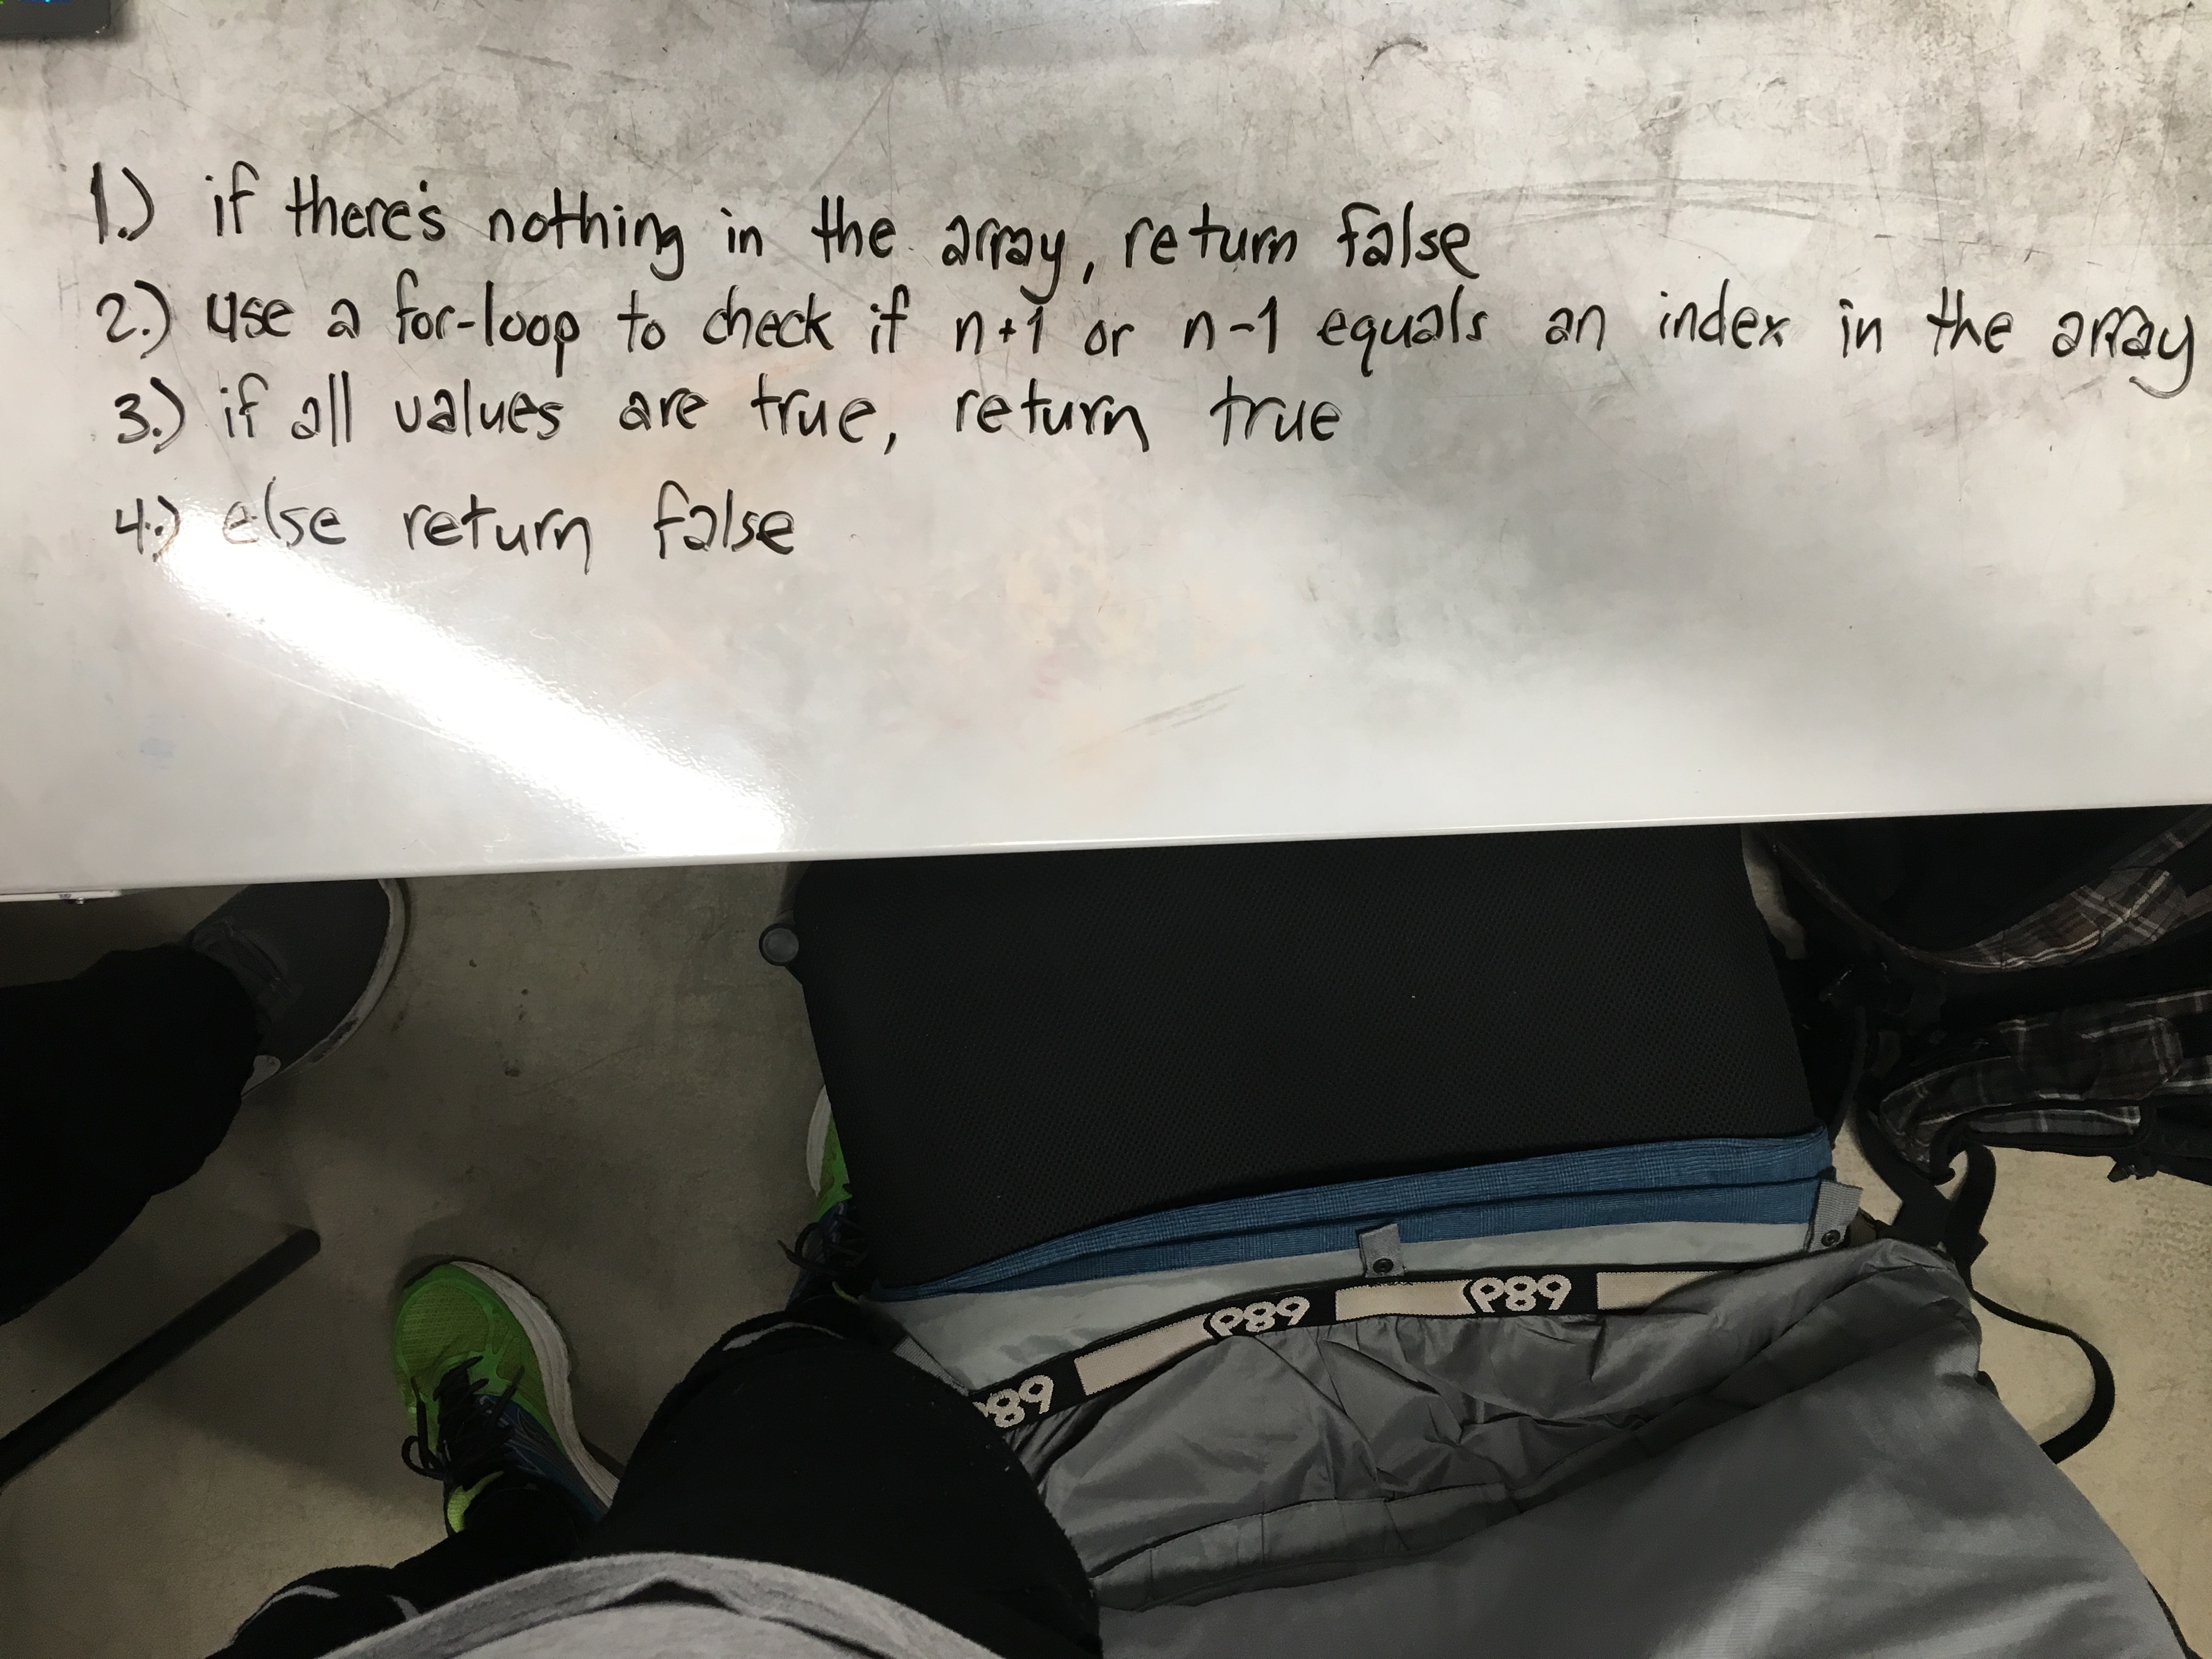 1.) if there's nothing in the array, return false
2.) use a for-loop to check if n+1 or n-1 equals an index in the array
3.) if all values are true, return true
4.) else return false